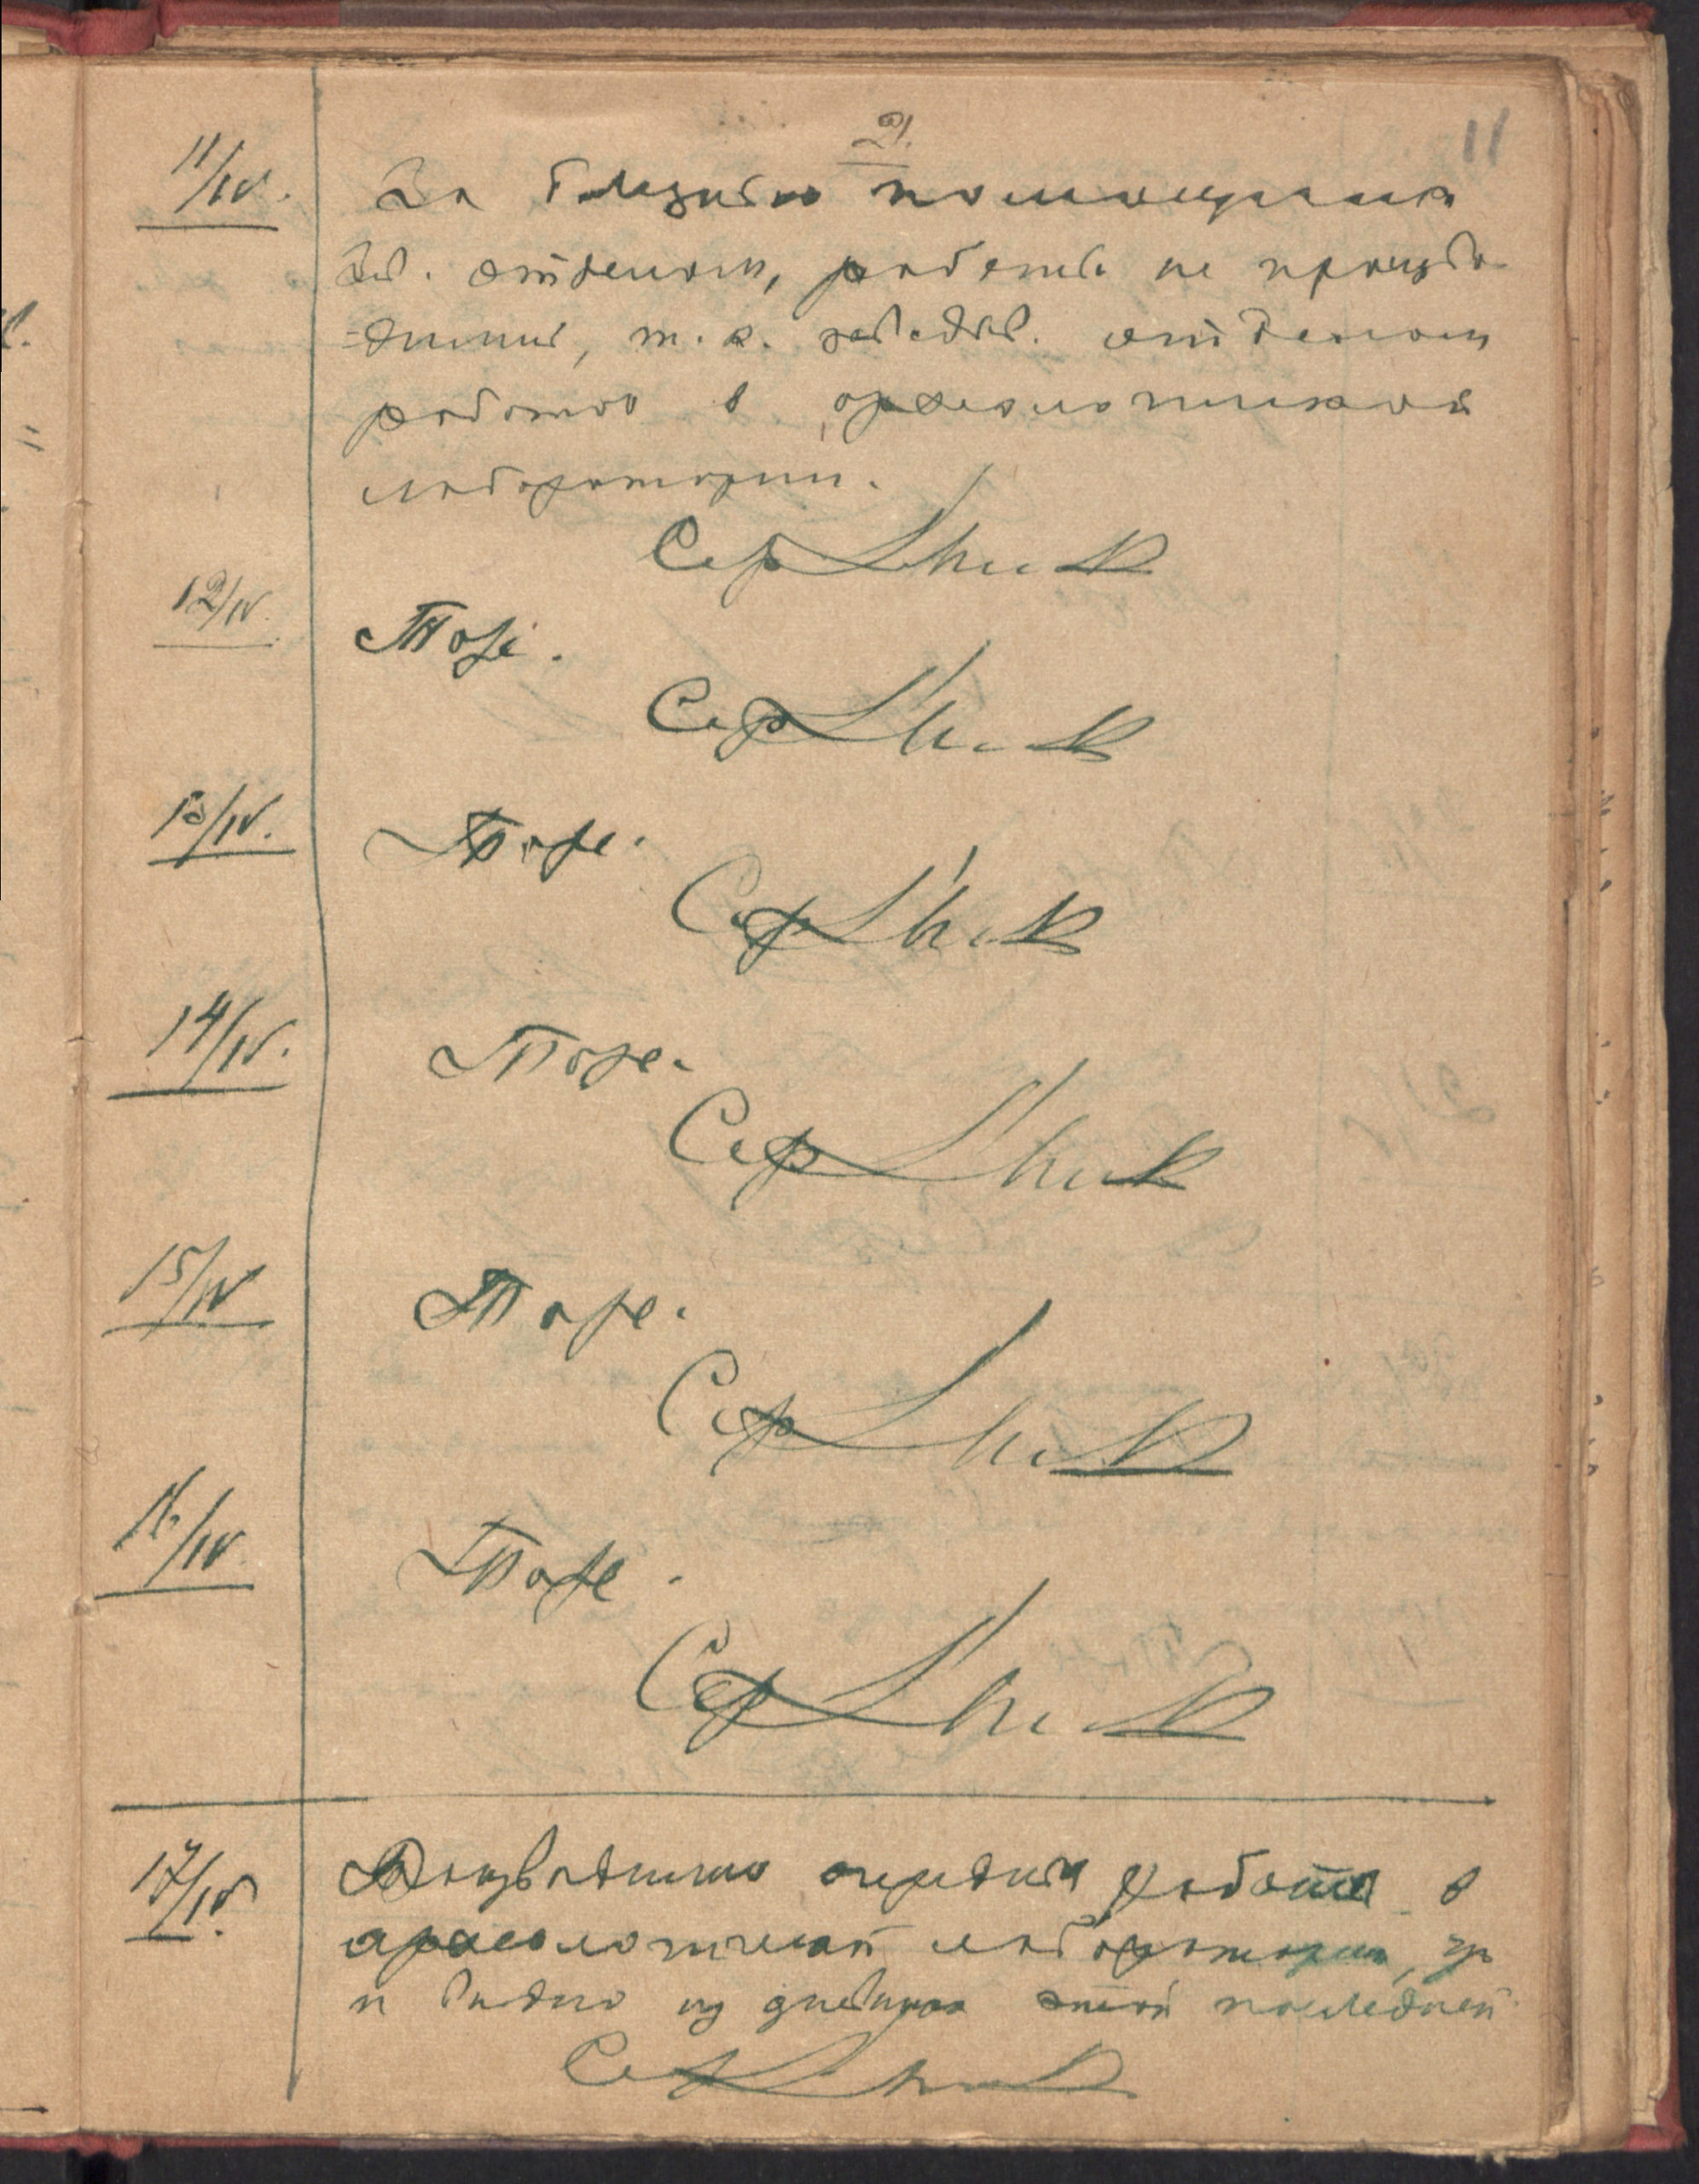 21.
11
11/IV.
За болезнью помощника
Зав. отделом, работы не произво-
-дились, т.к. завéдыв. отделом
работал в археологической
лаборатории.
Сер
12/IV.
Тоже.
Сер
13/IV.
Тоже.
Сер
14/IV.
Тоже.
Сер
15/IV
Тоже.
Сер
16/IV.
Тоже.
Сер
17/IV.
очередная работа в
археологической лаборатории,
и видно из дневника этой последней
Сер